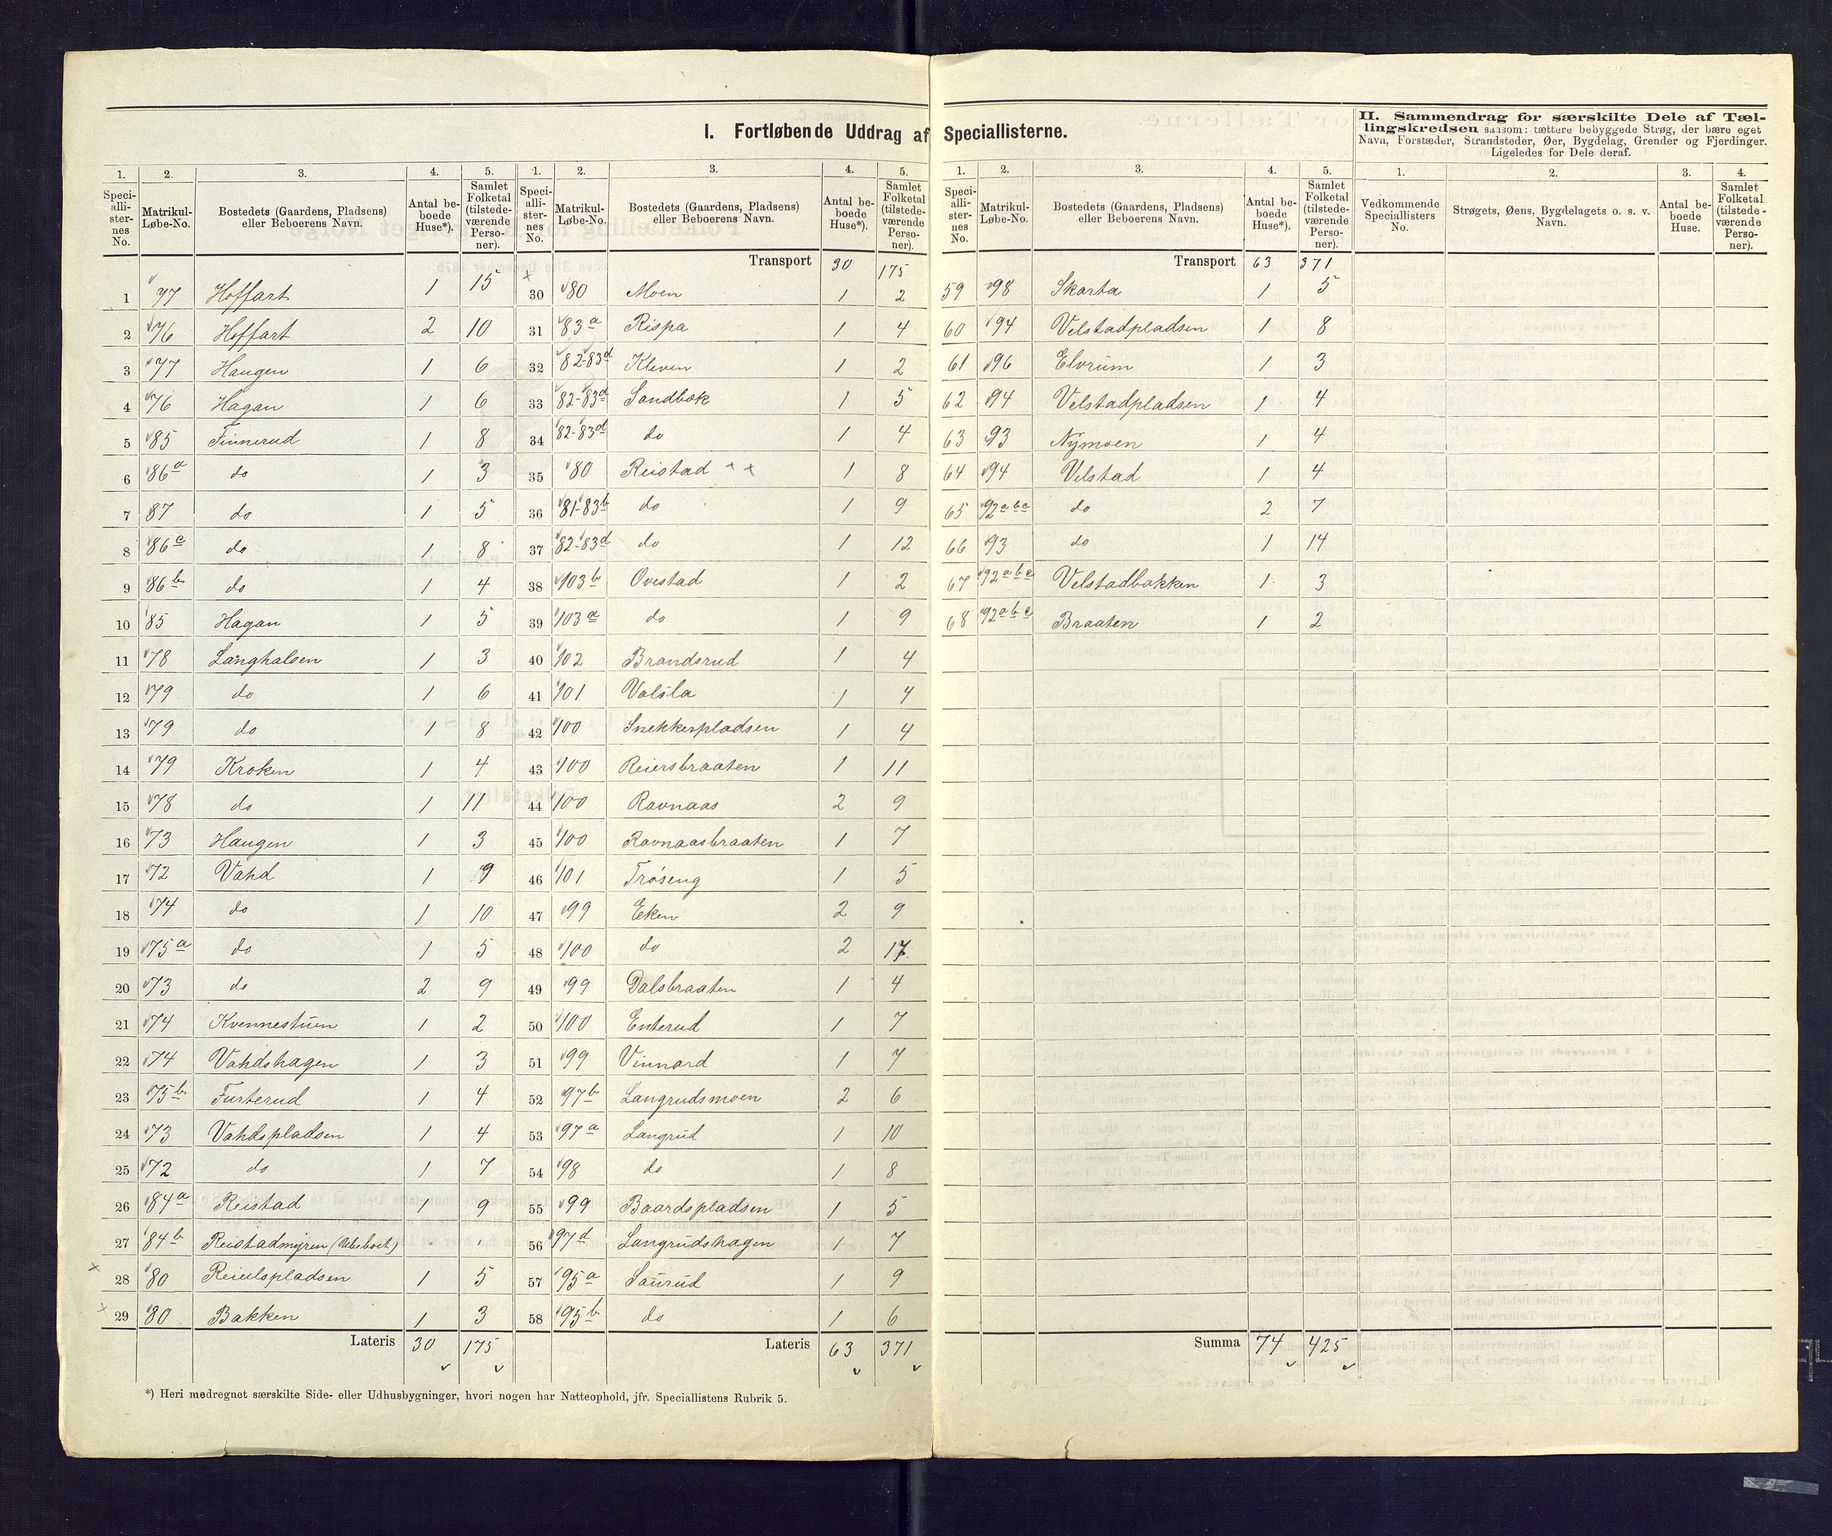 I. Fortløbende Uddrag af Speciallisterne.
II. Sammendrag for særskilte Dele af Tællingskredsen saasom: tættere bebyggede Strøg, der bære eget Navn, Forstæder, Strandsteder, Øer, Bygdelag, Grender og Fjerdinger. Ligeledes for Dele deraf.
1. 2. 3. 4. 5.
Speciallisternes No. Matrikul-Løbe-No. Bostedets (Gaardens, Pladsens) eller Beboerens Navn. Antal beboede Huse*). Samlet Folketal (tilstedeværende Personer).
1 77 Hoffart 1 15
2 76 Hoffart 2 10
3 77 Haugen 1 6
4 76 Hagan 1 6
5 85 Finnerud 1 8
6 86a do 1 3
7 87 do 1 5
8 86c do 1 8
9 86b do 1 4
10 85 Hagan 1 5
11 78 Langhalsen 1 3
12 79 do 1 6
13 79 do 1 8
14 79 Kroken 1 4
15 78 do 1 11
16 73 Haugen 1 3
17 72 Vahd 1 9
18 74 do 1 10
19 75a do 1 5
20 73 do 2 9
21 74 Kvennestuen 1 2
22 74 Vahdshagen 1 3
23 75b Furterud 1 4
24 73 Vahdspladsen 1 4
25 72 do 1 7
26 84a Reistad 1 9
27 84b Reistadmyren (Ubeboet) " "
28 80 Reiulspladsen 1 5
29 80 Bakken 1 3
Lateris 30 175
*) Heri medregnet særskilte Side- eller Udhusbygninger, hvori nogen har Natteophold, jfr. Speciallistens Rubrik 5.
1. 2. 3. 4. 5.
Speciallisternes No. Matrikul-Løbe-No. Bostedets (Gaardens, Pladsens) eller Beboerens Navn. Antal beboede Huse*). Samlet Folketal (tilstedeværende Personer).
Transport 30 175
30 80 Moen 1 2
31 83a Rispa 1 4
32 82-83d Kleven 1 2
33 82-83d Sandbæk 1 5
34 82-83d do 1 4
35 80 Reistad 1 8
36 81-83b do 1 9
37 82-83d do 1 12
38 103b Ovestad 1 2
39 103a do 1 9
40 102 Brandsrud 1 4
41 101 Valsla 1 4
42 100 Snekkerpladsen 1 4
43 100 Reiersbraaten 1 11
44 100 Ravnaas 2 9
45 100 Ravnaasbraaten 1 7
46 101 Trøseng 1 5
47 99 Eken 2 9
48 100 do 2 17
49 99 Dalsbraaten 1 4
50 100 Enterud 1 7
51 99 Vinnard 1 7
52 97b Langrudsmoen 2 6
53 97a Langrud 1 10
54 98 do 1 8
55 99 Baardspladsen 1 5
56 97d Langrudshagen 1 7
57 95a Saurud 1 9
58 95b do 1 6
Lateris 63 371
1. 2. 3. 4. 5.
Speciallisternes No. Matrikul-Løbe-No. Bostedets (Gaardens, Pladsens) eller Beboerens Navn. Antal beboede Huse*). Samlet Folketal (tilstedeværende Personer).
Transport 63 371
59 98 Skarta 1 5
60 94 Velstadpladsen 1 8
61 96 Elvrum 1 3
62 94 Velstadpladsen 1 4
63 93 Nymoen 1 4
64 94 Velstad 1 4
65 92a b c do 2 7
66 93 do 1 14
67 92a b c Velstadbakken 1 3
68 92a b c Braaten 1 2
Summa 74 425
1. 2. 3. 4.
Vedkommende Speciallisters No. Strøgets, Øens, Bygdelagets o. s. v. Navn. Antal beboede Huse. Samlet Folketal (tilstedeværende Personer).